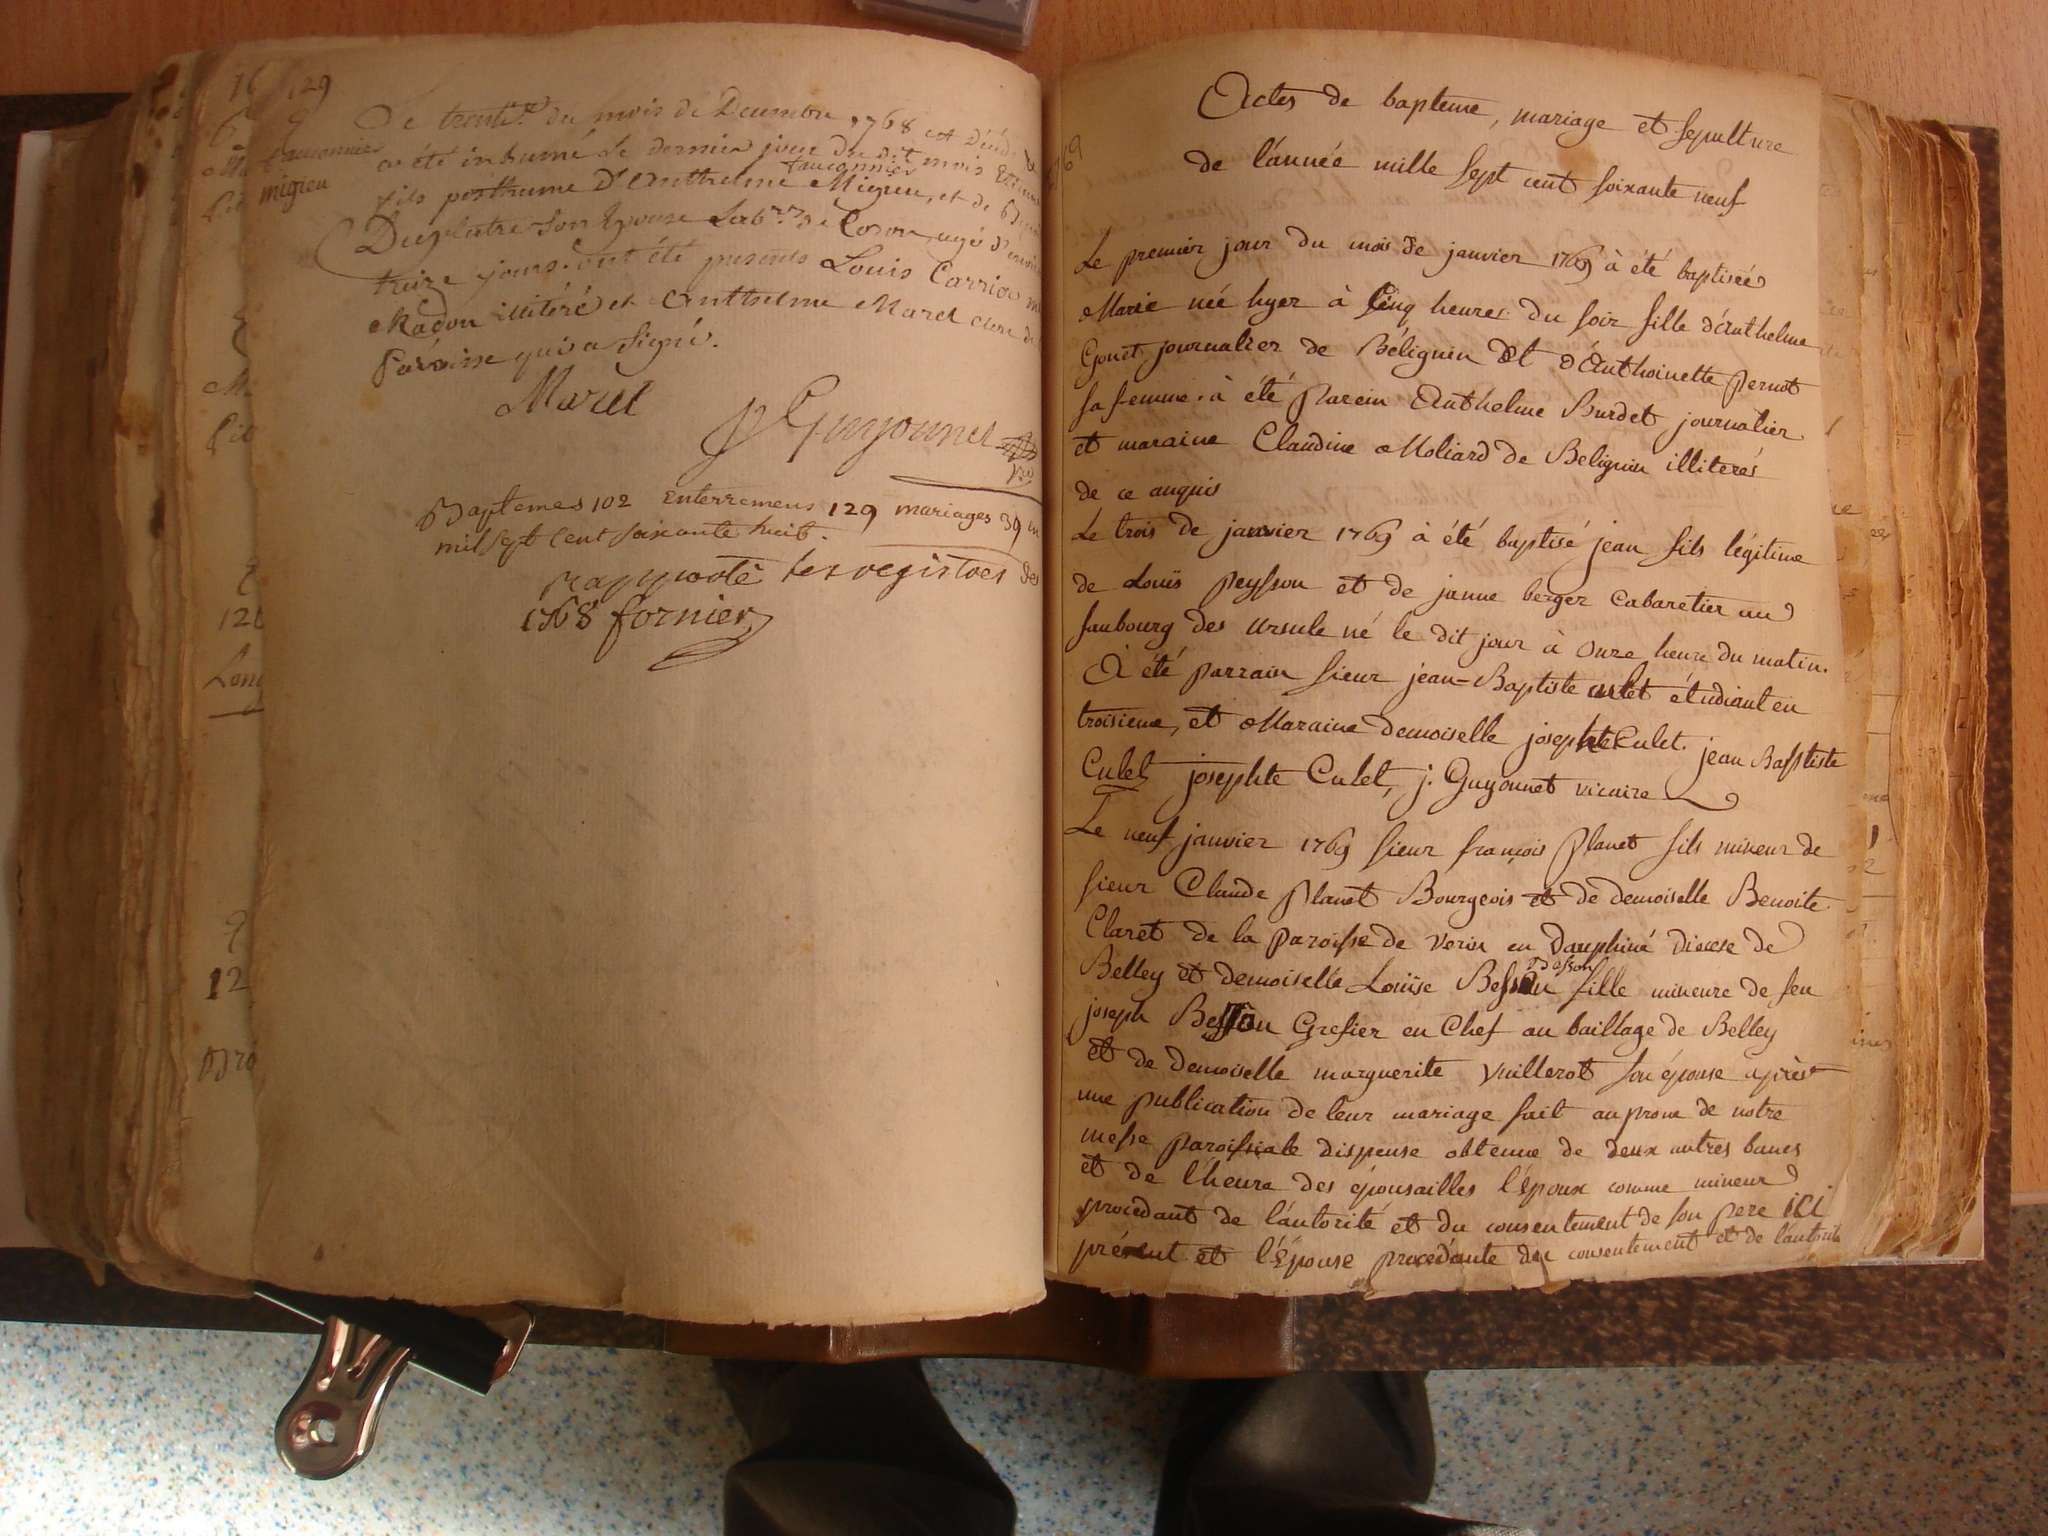 129
fauconnier
migieu
Le trente du mois de Decembre 1768 est décédé
a été inhumé le dernier jour du dit mois
faucounier
fils posthume d'Anthelme Migieu, et de
Duplatre son Epouse Lab.rs de Coron, agé d'environ
treize jours. ont été presents Louis Carrier
Maçon illitéré et Anthelme Maret clerc de
Paroisse qui a signé.
Maret
Guyonnet
Baptemes 102 enterremens 129 mariages 39 en
mil sept cent soixante huit.
rapporté les registres des
1768 fornier
69
Actes de bapteme, mariage et sepulture
de l'année mille sept cent soixante neuf
Le premier jour du mois de janvier 1769 à été baptiseé
Marie née hyer à Cinq heures du soir fille d'Anthelme
Gonet journalier de Bélignin et d'Anthoinette Pernot
sa femme. à été Parein Anthelme Burdet journalier
et maraine Claudine Moliard de Belignin illiterés
de ce anquis
Le trois de janvier 1769 à été baptisé jean fils légitime
de Louïs Peysson et de janne berger Cabaretier au
faubourg des ursule né le dit jour à onze heure du matin.
À été parrain sieur jean-Baptiste Culet étudiant en
troisieme, et Maraine demoiselle josephte Culet. jean Baptiste
Culet josephte Culet, j. Guyonnet vicaire
Le neuf janvier 1769 sieur françois Planet fils mineur de
sieur Claude Planet Bourgeois et de demoiselle Benoite
Claret de la paroisse de verin en Dauphiné diocese de
Belley et demoiselle Louïse Besson fille mineure de feu
joseph Besson Grefier en Chef au baillage de Belley
et de demoiselle marguerite Vuillerot son épouse après
une publication de leur mariage fait au prone de notre
messe paroissiale dispense obtenue de deux autres bancs
et de l'heure des épousailles l'époux comme mineur
procedant de l'autorité et du consentement de son pere ici
présent et l'Épouse procedante du consentement et de l'autorité